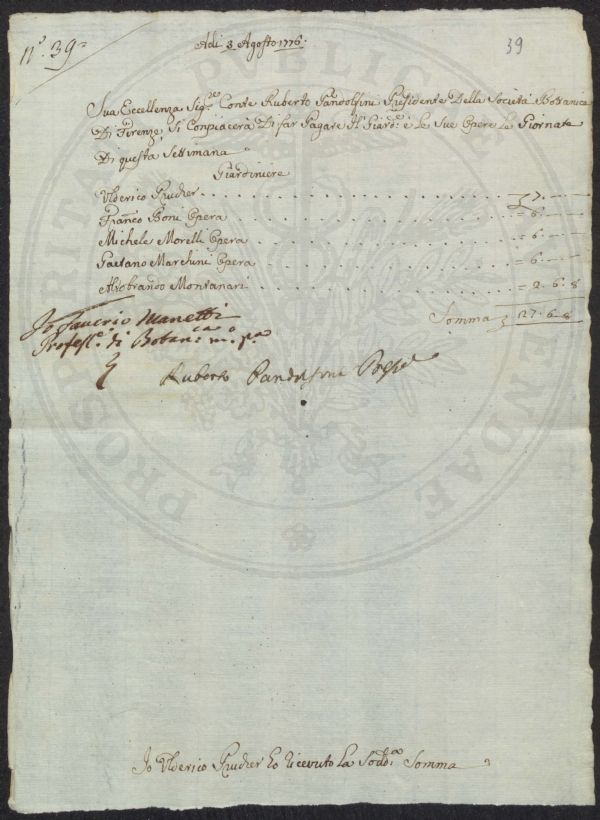 n.° 39
Adi 3. Agosto 1776.
39
Sua Eccellenza Sig.re Conte Ruberto Pandolfini Presidente Della Società Botanica
Di Firenze, Si Conpiacerà Di far Pagare Il Giard.e e le Sue Opere Le Giornate
Di questa Settimana
Giardiniere
Ulderico Prucher . . . 7. —
Franc.o Boni Opera . . . = 6. —
Michele Morelli Opera . . . = 6. —
Gaetano Marchini Opera . . . = 6. —
Aldobrando Montanari . . . = 2. 6. 8
Somma 27. 6. 8
Io Saverio Manetti
Profess.e di Botan.ca m.o p.a
Ruberto Pandolfini Presid.e
Io Ulderico Prucher ho ricevuto La Sodd.a Somma
PUBLICAE
PROSPERITATI